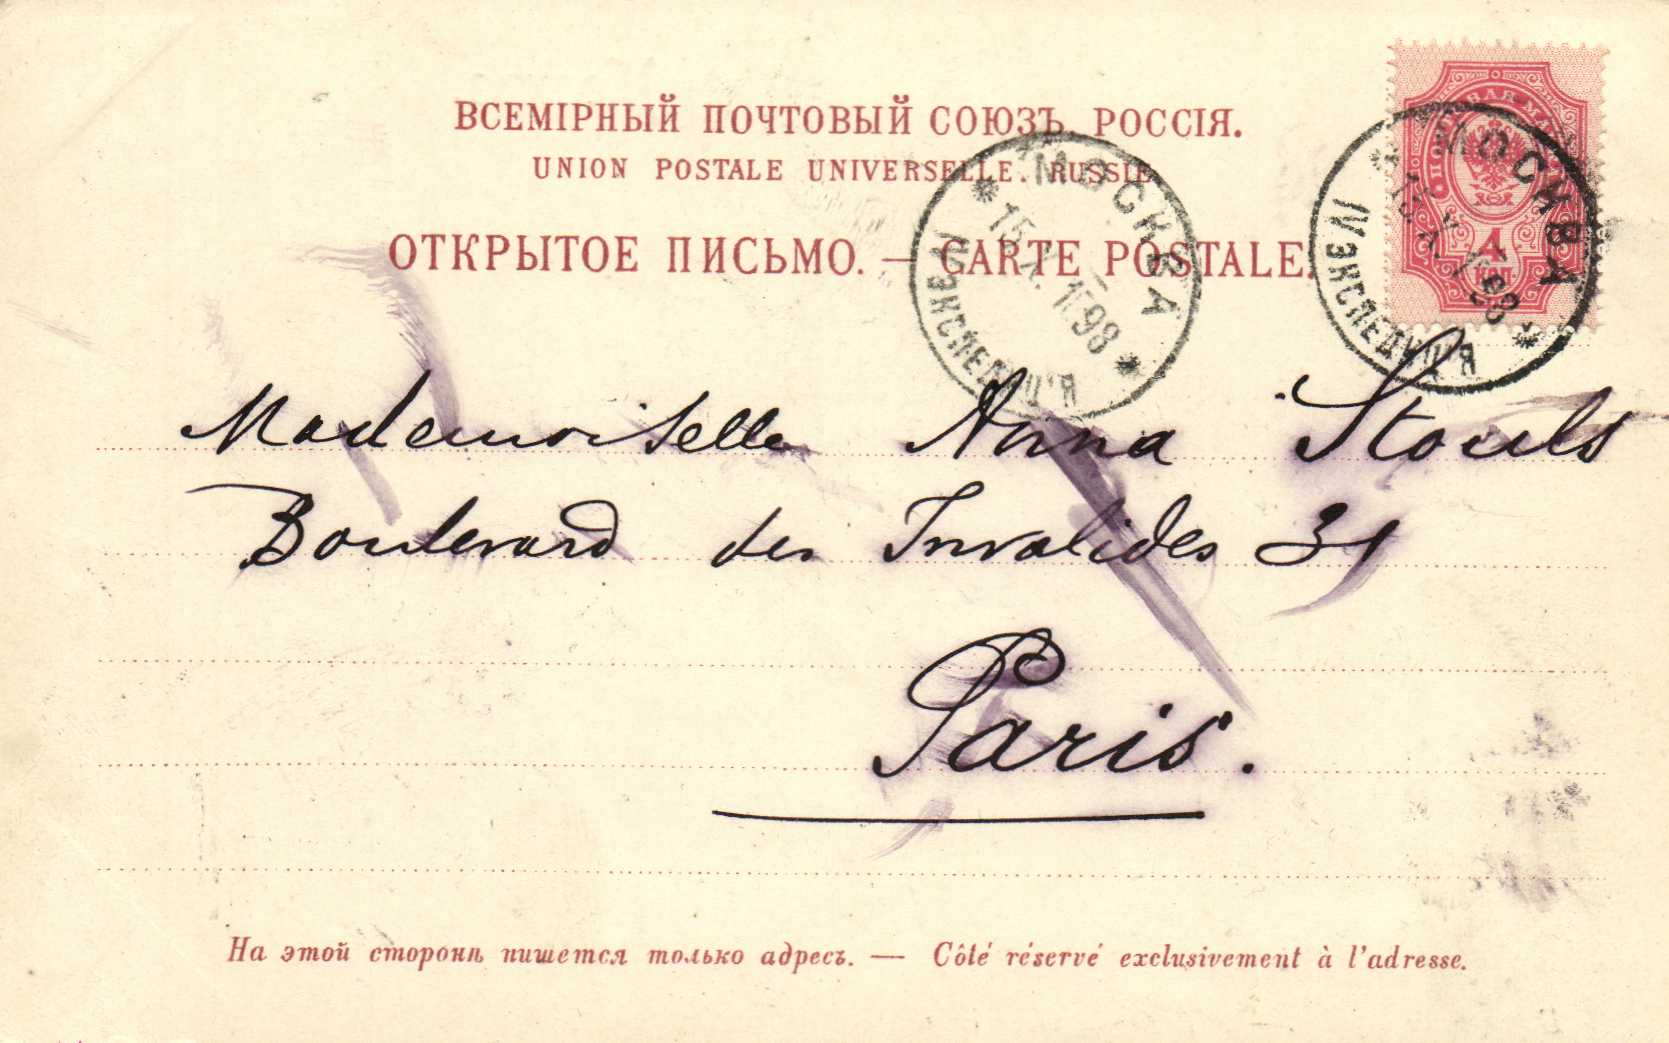 ВСЕМІРНЫЙ ПОЧТОВЫЙ СОЮЗЪ. РОССІЯ.
UNION POSTALE UNIVERSELLE. RUSSIE
ОТКРЫТОЕ ПИСЬМО. — CARTE POSTALE.
МОСКВА
15 1898
VI ЭКСПЕДИЦІЯ
МОСКВА
VI ЭКСПЕДИЦІЯ
4
КОП.
Mademoiselle Anna
Boulevard des Invalides 31
Paris.
На этой сторонѣ пишется только адресъ. — Côté réservé exclusivement à l'adresse.